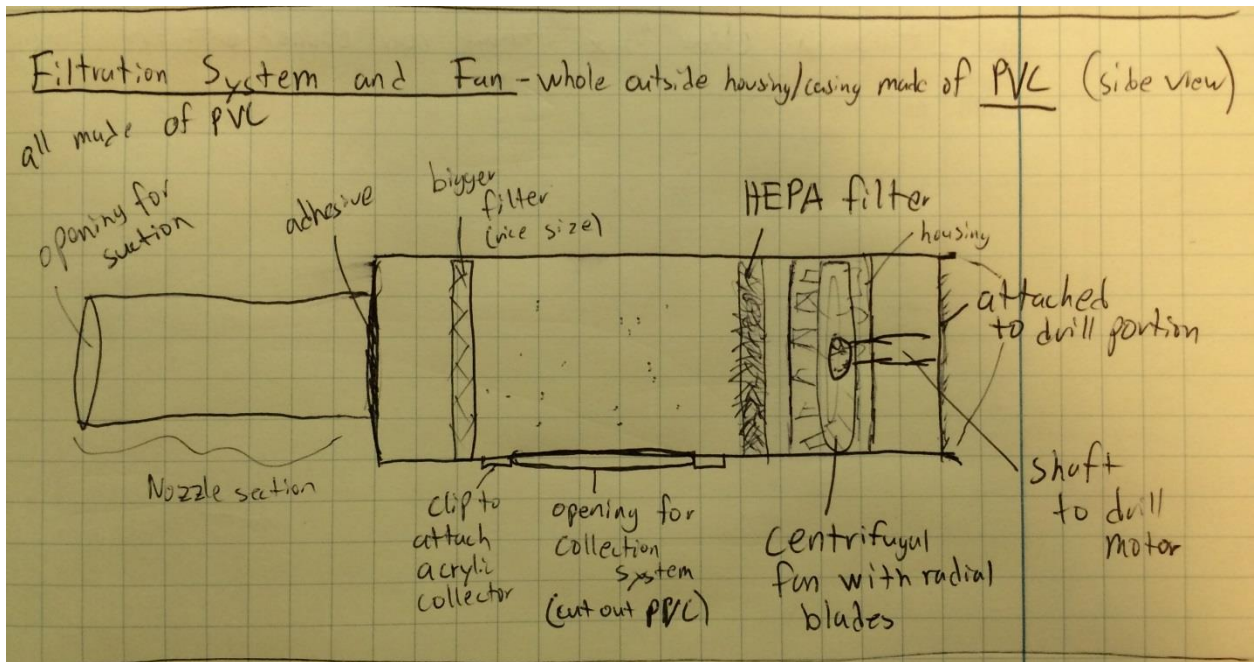 Filtration System and Fan - whole outside housing/casing made of PVC (side view)
all made of PVC
opening for
suction
adhesive
bigger
filter
(rice size)
HEPA filter
housing
attached
to drill portion
Nozzle section
clip to
attach
acrylic
collector
opening for
collection
system
(cut out PVC)
Centrifugal
fan with radial
blades
shaft
to drill
motor